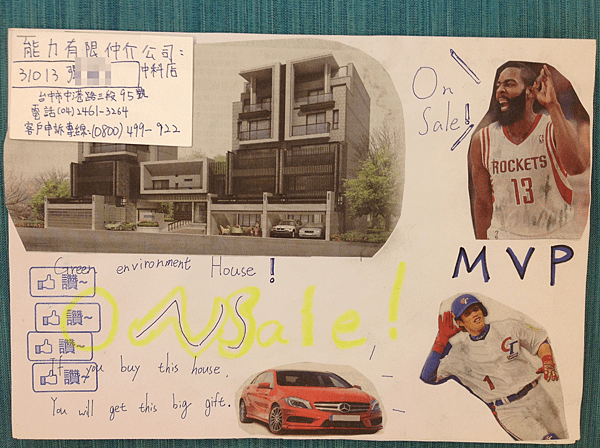 能力有限仲介公司：
31013 張
中科店
台中市中港路三段95號
電話(04)2461-3264
客戶申訴專線:(0800)499-922
On
Sale!
ROCKETS
13
MVP
CT
1
Green environment House!
讚~
讚~
讚~
讚~
On Sale!
If you buy this house,
You will get this big gift.